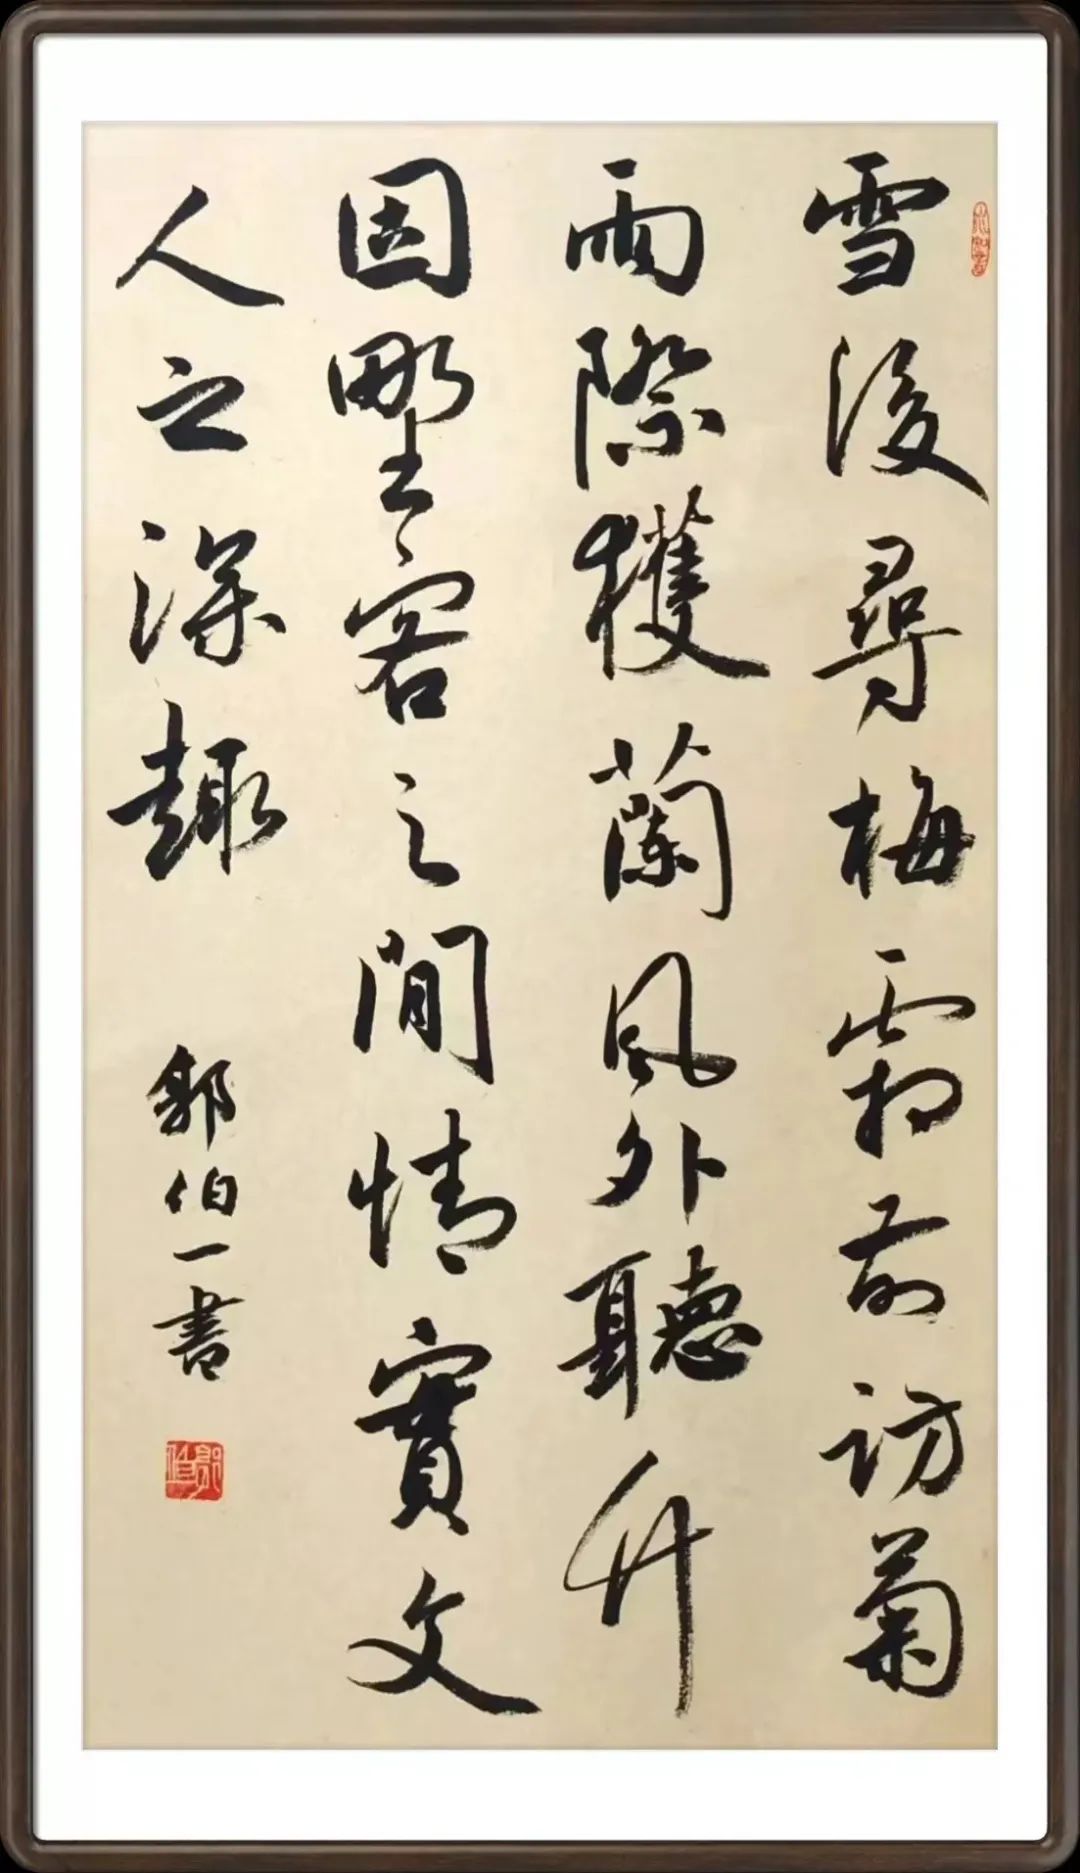 雪後尋梅霜前訪菊
雨際獲蘭風外聽竹
固野客之閒情實文
人之深趣
郭伯一書